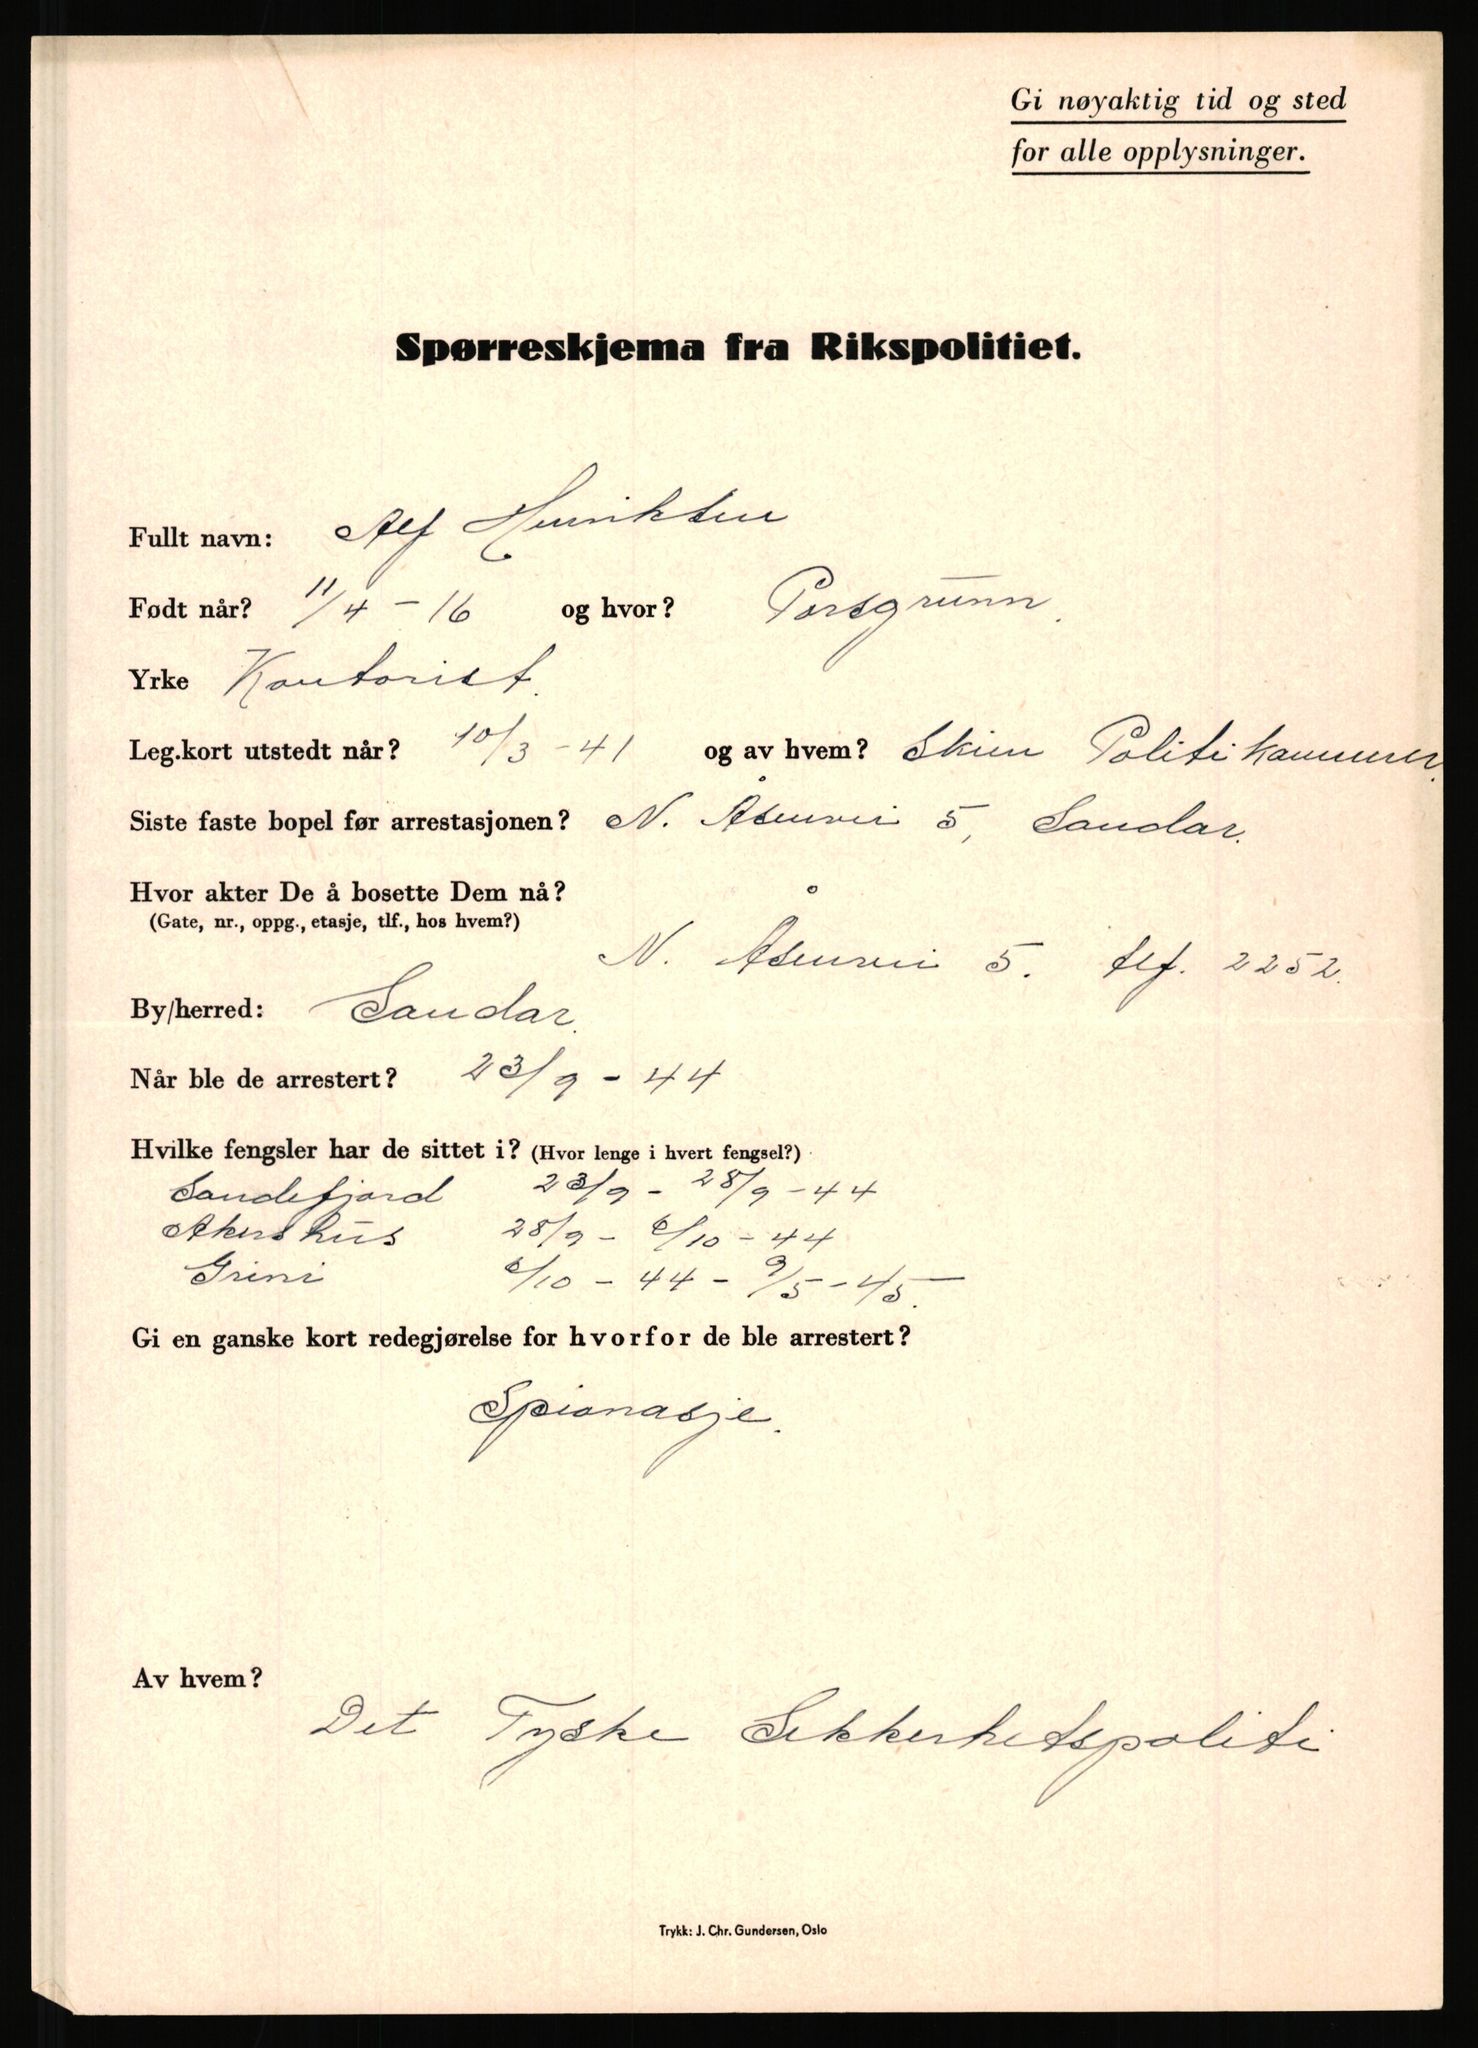 Gi nøyaktig tid og sted
for alle opplysninger.
Spørreskjema fra Rikspolitiet.
Fullt navn: Alf Henriksen
Født når? 11/4 - 16 og hvor? Porsgrunn.
Yrke Kontorist.
Leg.kort utstedt når? 10/3 - 41 og av hvem? Skien Politikammer.
Siste faste bopel før arrestasjonen? N. Åsenvei 5, Sandar.
Hvor akter De å bosette Dem nå?
(Gate, nr., oppg., etasje, tlf., hos hvem?)
N. Åsenvei 5. tlf. 2252.
By/herred: Sandar.
Når ble de arrestert? 23/9 - 44
Hvilke fengsler har de sittet i? (Hvor lenge i hvert fengsel?)
Sandefjord 23/9 - 28/9 - 44
Akershus 28/9 - 6/10 - 44
Grini 6/10 - 44 - 9/5 - 45.
Gi en ganske kort redegjørelse for hvorfor de ble arrestert?
Spionasje.
Av hvem?
Det Tyske Sikkerhetspoliti
Trykk: J. Chr. Gundersen, Oslo